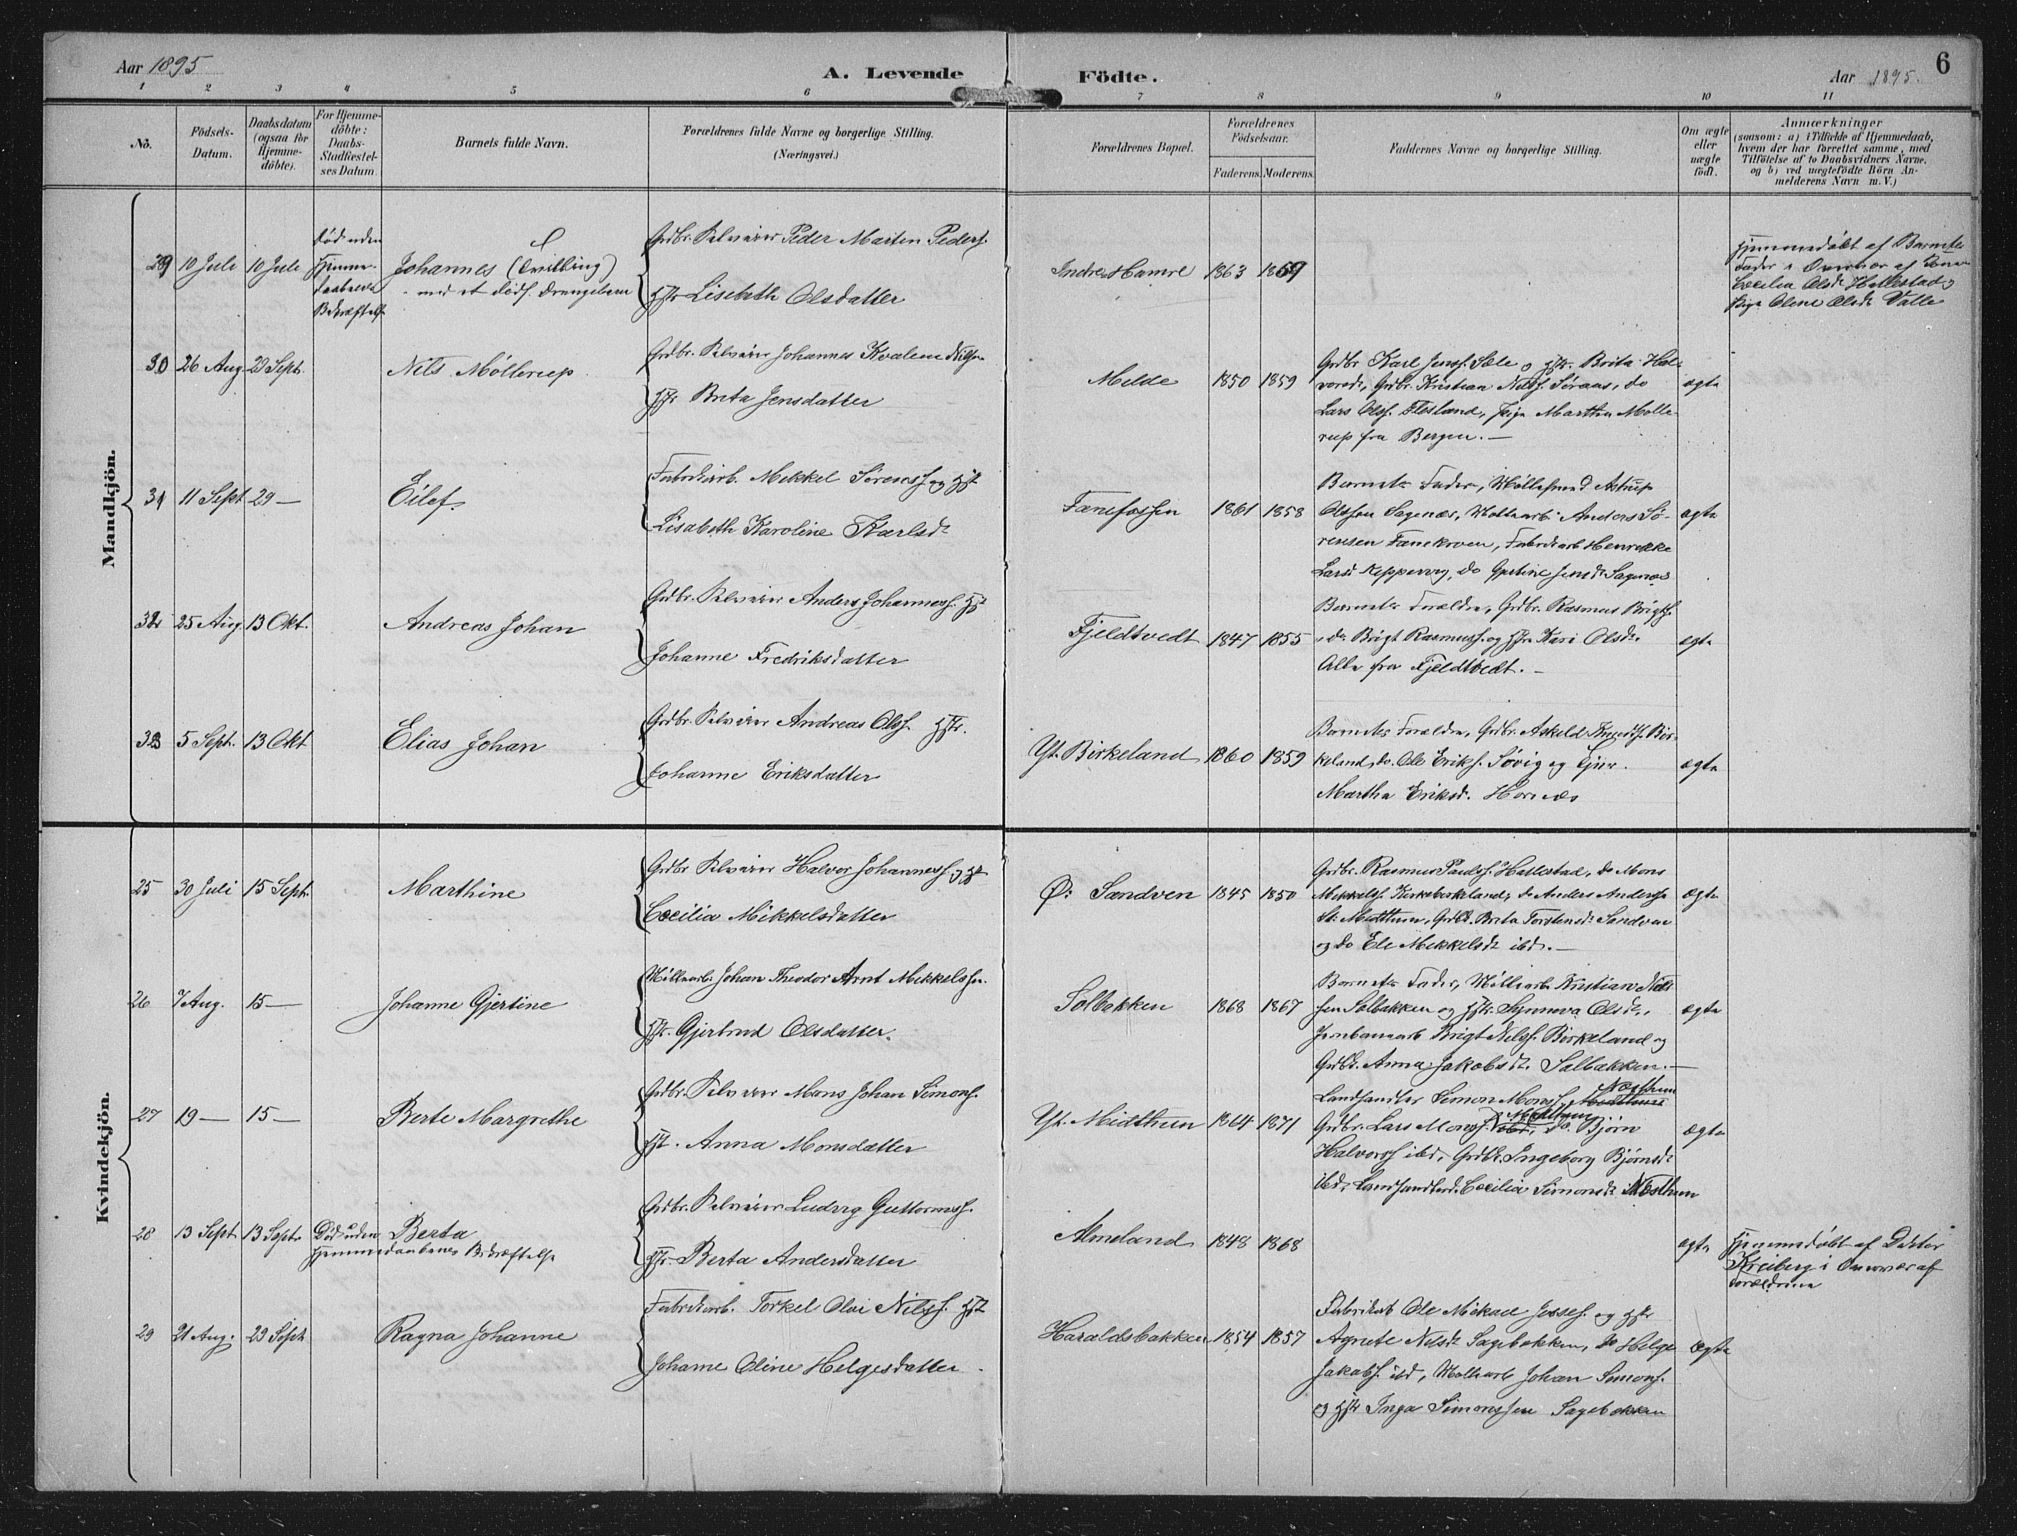 Aar 1895
A. Levende
Födte.
Aar 1895.
6
1 2 3 4 5 6 7 8 9 10 11
No.
Födsels-
Datum.
Daabsdatum
(ogsaa for
Hjemme-
döbte).
For Hjemme-
döbte:
Daabs-
Stadfæstel-
ses Datum.
Barnets fulde Navn.
Forældrenes fulde Navne og borgerlige Stilling.
(Næringsvei.)
Forældrenes Bopæl.
Forældrenes
Födselsaar.
Faderens. Moderens.
Faddernes Navne og borgerlige Stilling.
Om ægte
eller
uægte
födt.
Anmærkninger
(saasom: a) i Tilfælde af Hjemmedaab,
hvem der har forrettet samme, med
Tilföielse af to Daabsvidners Navne,
og b) ved uægtefödte Börn An-
melderens Navn m. V.)
Mandkjön.
29 10 Juli 10 Juli
Død uden
Hjemme-
daabens
Bekræftelse
Johannes (Tvilling)
med et dødf. Drengebarn
Grdbr. Selveier Peder Marten Peders.
Hstr Lisebeth Olsdatter
Indre Hamre 1863 1869
Hjemmedøbt af Barnets
Fader i Overvær af
Cecilia Olsdr Hallestad og
Pige Olene Olsdr Valle
30 26 Aug 29 Sept.
Nils Møllerup
Grdbr. Selveier Johannes Kvalem Nilsen
Hstr Brita Jensdatter
Melde 1850 1859
Grdbr Karl Jenss. Sæle og Hstr. Brita Hal-
vorsdr, Grdbr. Kristian Nilss. Søraas, do
Lars Olss. Flesland, Pige Martha Mølle-
rup fra Bergen. —
ægte
31 11 Sept 29 —
Eilef.
Fabrikarb. Mikkel Sørenss og Hst
Lisabeth Karoline Karlsdr
Fanefossen 1861 1858
Barnets Fader, Møllesvend Astrup
Olssen Sagenæs, Møllearb. Anders Sø-
rensen Fanekroen, Fabrikarb Henrikke
Larsd Keppervog, do Gjertine Jensdr Sagenæs
ægte
32 25 Aug. 13 Okt.
Andreas Johan
Grdbr. Selveier Anders Johanness. Hst
Johanne Fredriksdatter
Fjeldtvedt 1847 1855
Barnets Forældre, Grdbr. Rasmus Brigts.
, do Brigt Rasmuss. og Hstr Kari Olsdr.
Alle fra Fjeldtvedt. —
ægte
33 5 Sept. 13 Okt
Elias Johan
Grdbr. Selveier Andreas Olss. Hstr.
Johanne Eriksdatter
Yt. Birkeland 1860 1859
Barnets Forældre, Grdbr. Askeld Knuds. Bir-
keland, do. Ole Eriks. Søvig og Tjen.
Martha Eriksd. Hornæs
ægte
Kvindekjön.
25 30 Juli 15 Sept.
Marthine
Grdbr Selveier Halvor Johanness. og Hst
Cecilia Mikkelsdatter
Ø. Sandven 1845 1850
Grdbr. Rasmus Pauls. Hallestad, do Mons
Mikkels. Kirkebirkeland, do Anders Anderss.
St. Midttun, Grdbd. Brita Torstensdr Sandven
og do Ele Mikkelsdr ibd. —
ægte
26 7 Aug. 15 —
Johanne Gjertine
Møllearb. Johan Theodor Arnt Mikkelssen.
Hst. Gjertrud Olsdatter.
Solbakken 1868 1867
Barnets Fader, Møllearb Kristian Nils-
sen Solbakken og Hstr. Synneva Olsdr,
Jernbanearb Brigt Nilss. Birkeland og
Grdbd. Anna Jakobsdr. Solbakken. —
ægte
27 19 — 15 —
Berte Margrethe
Grdbr. Selveier Mons Johan Simons.
Hst. Anna Monsdatter
Yt. Midtthun 1864 1871
Landhandler Simon Monss. Næsttun
Grdbr. Lars Monss. Midttun, do. Bjørn
Halvorss ibd, Grdbd. Ingeborg Bjørnsdr
ibd, Landhandlerd. Cecilia Simonsdr Næsttun
ægte
28 13 Sept 13 Sept
Død uden
Hjemmedaabens Bekræftelse
Berta
Grdbr. Selveier Ludvig Guttormss.
Hstr. Berta Andersdatter
Almeland 1848 1868
ægte
Hjemmedøbt af Doktor
Kreiberg i Overvær af
Forældrene
29 21 Aug. 29 Sept
Ragna Johanne
Fabrikarb. Torkel Olai Nilss. Hst
Johanne Oline Helgesdatter
Haraldsbakken 1854 1857
Fabrikarb Ole Mikael Joss. og Hstr
Agnete Nilsdr Sagebakken, do Helge
Jakobs. ibd, Møllearb Johan Simons.
og Hstr Inga Simonssen Sagebakken
ægte